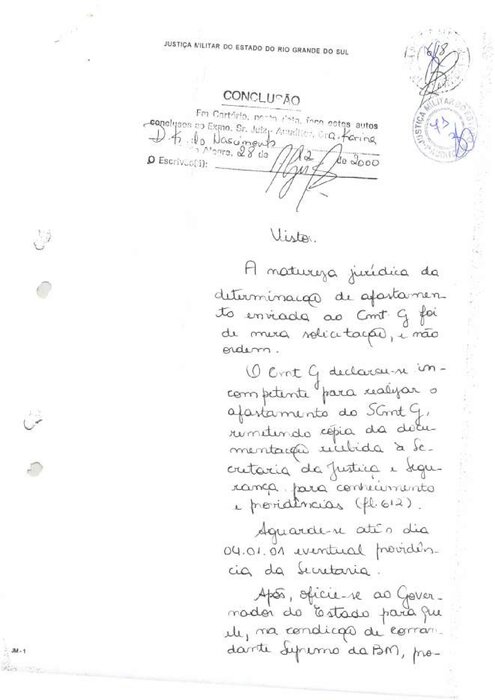 JUSTIÇA MILITAR DO ESTADO DO RIO GRANDE DO SUL
CONCLUSÃO
Em Cartório, nesta data, faço estes autos
conclusos ao Exmo. Sr. Juiz Auditor, Dra. Karina
D. K. do Nascimento
Alegre, 28 de 12 de 2000
O Escrivão(ã):
Visto.
A natureza jurídica da
determinação de afastamen-
to enviada ao Cmt G foi
de mera solicitação, e não
ordem.
O Cmt G declarou-se in-
competente para realizar o
afastamento do SCmt G,
remetendo cópia da docu-
mentação recebida à Se-
cretaria da Justiça e Segu-
rança para conhecimento
e providências (fl. 612).
Aguarde-se até o dia
04.01.01 eventual providên-
cia da Secretaria.
Após, oficie-se ao Gover-
nador do Estado para que
ele, na condição de coman-
dante Supremo da BM, pro-
JM - 1